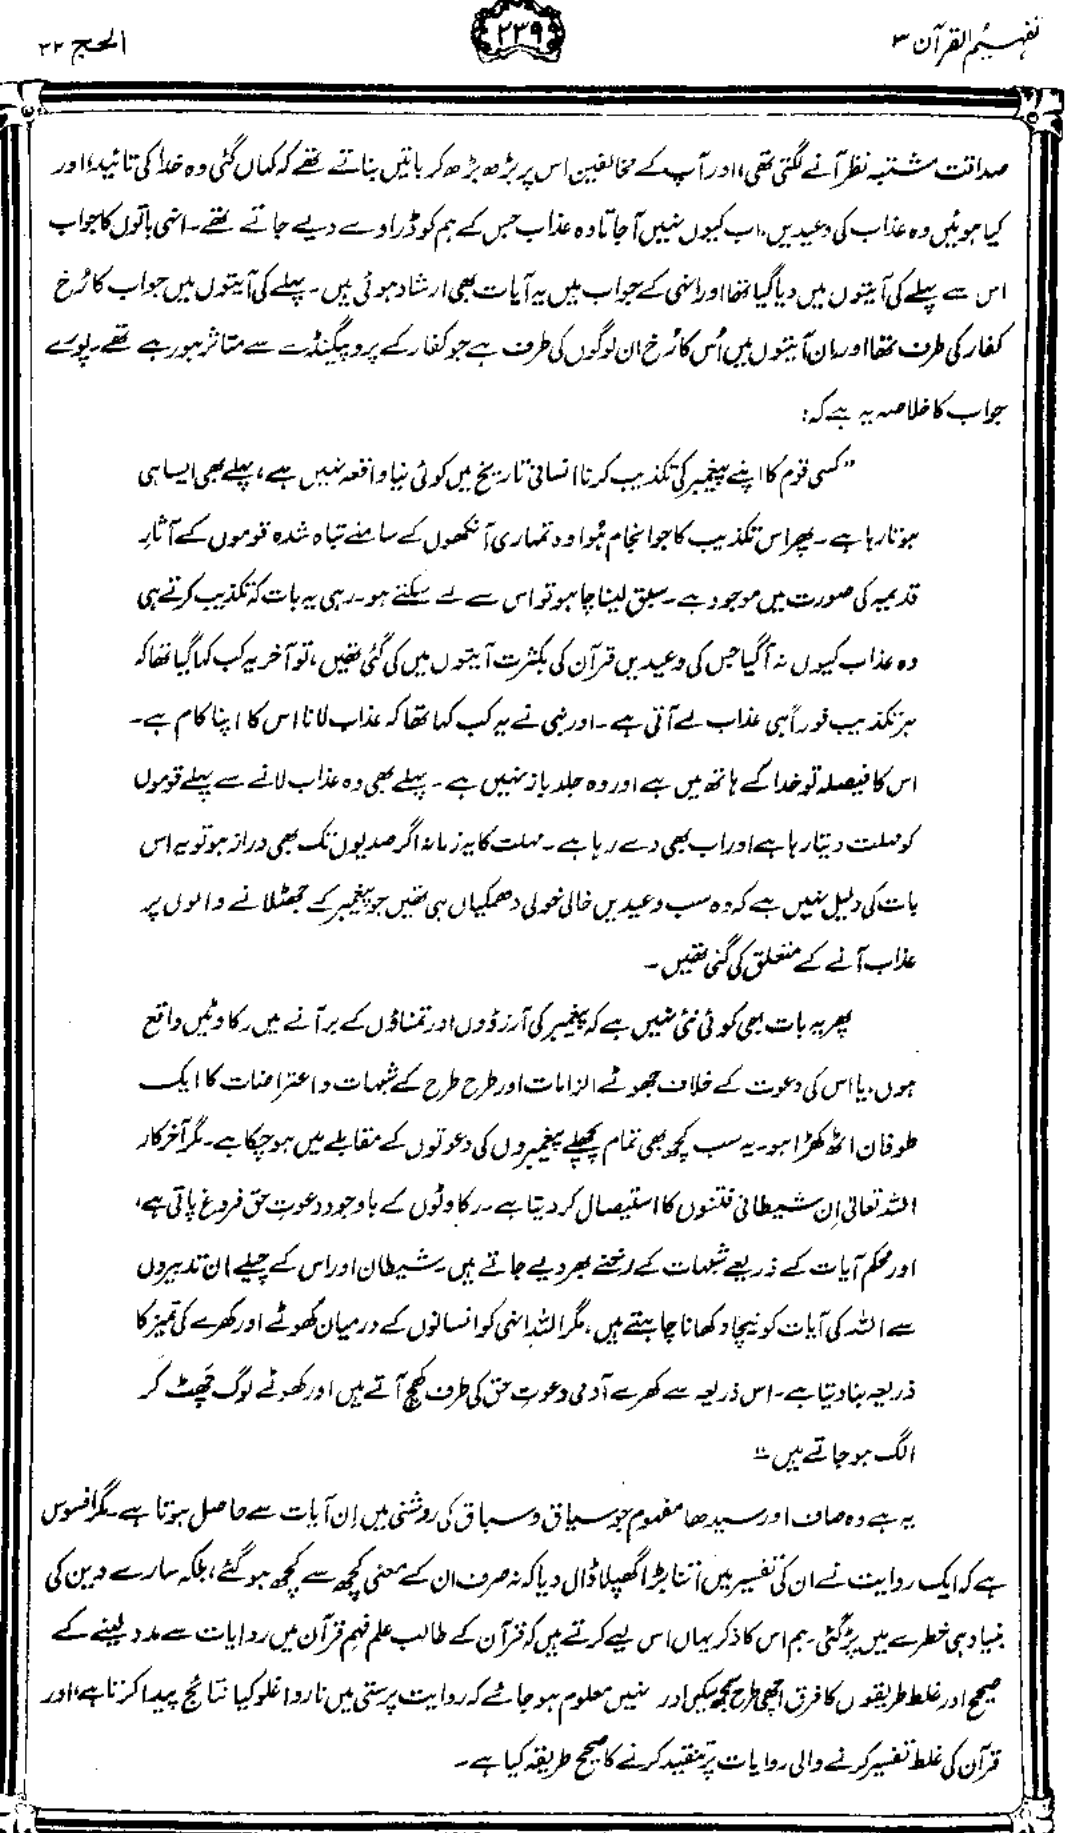 تفہیم القرآن ۳
۲۳۹
الحج ۲۲
صداقت مشتبہ نظر آنے لگتی تھی، اور آپ کے مخالفین اس پر بڑھ بڑھ کر باتیں بناتے تھے کہ کہاں گئی وہ خدا کی تائید، اور
کیا ہوئیں وہ عذاب کی وعیدیں، اب کیوں نہیں آ جاتا وہ عذاب جس کے ہم کو ڈراوے دیے جاتے تھے۔ انہی باتوں کا جواب
اس سے پہلے کی آیتوں میں دیا گیا تھا اور انہی کے جواب میں یہ آیات بھی ارشاد ہوئی ہیں۔ پہلے کی آیتوں میں جواب کا رُخ
کفار کی طرف تھا اور ان آیتوں میں اُس کا رُخ ان لوگوں کی طرف ہے جو کفار کے پروپیگنڈے سے متاثر ہو رہے تھے۔ پورے
جواب کا خلاصہ یہ ہے کہ:
”کسی قوم کا اپنے پیغمبر کی تکذیب کرنا انسانی تاریخ میں کوئی نیا واقعہ نہیں ہے، پہلے بھی ایسا ہی
ہوتا رہا ہے۔ پھر اس تکذیب کا جو انجام ہُوا وہ تمہاری آنکھوں کے سامنے تباہ شدہ قوموں کے آثارِ
قدیمہ کی صورت میں موجود ہے۔ سبق لینا چاہو تو اس سے لے سکتے ہو۔ رہی یہ بات کہ تکذیب کرتے ہی
وہ عذاب کیوں نہ آ گیا جس کی وعیدیں قرآن کی بکثرت آیتوں میں کی گئی تھیں، تو آخر یہ کب کہا گیا تھا کہ
ہر تکذیب فوراً ہی عذاب لے آتی ہے۔ اور نبی نے یہ کب کہا تھا کہ عذاب لانا اس کا اپنا کام ہے۔
اس کا فیصلہ تو خدا کے ہاتھ میں ہے اور وہ جلد باز نہیں ہے۔ پہلے بھی وہ عذاب لانے سے پہلے قوموں
کو مہلت دیتا رہا ہے اور اب بھی دے رہا ہے۔ مہلت کا یہ زمانہ اگر صدیوں تک بھی دراز ہو تو یہ اس
بات کی دلیل نہیں ہے کہ وہ سب وعیدیں خالی خولی دھمکیاں ہی تھیں جو پیغمبر کے جھٹلانے والوں پر
عذاب آنے کے متعلق کی گئی تھیں۔
پھر یہ بات بھی کوئی نئی نہیں ہے کہ پیغمبر کی آرزوؤں اور تمناؤں کے بر آنے میں رکاوٹیں واقع
ہوں، یا اس کی دعوت کے خلاف جھوٹے الزامات اور طرح طرح کے شبہات و اعتراضات کا ایک
طوفان اٹھ کھڑا ہو۔ یہ سب کچھ بھی تمام پچھلے پیغمبروں کی دعوتوں کے مقابلے میں ہو چکا ہے۔ مگر آخر کار
اللہ تعالیٰ اِن شیطانی فتنوں کا استیصال کر دیتا ہے۔ رکاوٹوں کے باوجود دعوتِ حق فروغ پاتی ہے،
اور محکم آیات کے ذریعے شبہات کے رخنے بھر دیے جاتے ہیں۔ شیطان اور اس کے چیلے ان تدبیروں
سے اللہ کی آیات کو نیچا دکھانا چاہتے ہیں، مگر اللہ انہی کو انسانوں کے درمیان کھوٹے اور کھرے کی تمیز کا
ذریعہ بنا دیتا ہے۔ اس ذریعہ سے کھرے آدمی دعوتِ حق کی طرف کھِچ آتے ہیں اور کھوٹے لوگ چھٹ کر
الگ ہو جاتے ہیں۔“
یہ ہے وہ صاف اور سیدھا مفہوم جو سیاق و سباق کی روشنی میں اِن آیات سے حاصل ہوتا ہے۔ مگر افسوس
ہے کہ ایک روایت نے ان کی تفسیر میں اتنا بڑا گھپلا ڈال دیا کہ نہ صرف ان کے معنی کچھ سے کچھ ہو گئے، بلکہ سارے دین کی
بنیاد ہی خطرے میں پڑ گئی۔ ہم اس کا ذکر یہاں اس لیے کرتے ہیں کہ قرآن کے طالب علم فہمِ قرآن میں روایات سے مدد لینے کے
صحیح اور غلط طریقوں کا فرق اچھی طرح سمجھ سکیں اور انہیں معلوم ہو جائے کہ روایت پرستی میں ناروا غلو کیا نتائج پیدا کرتا ہے، اور
قرآن کی غلط تفسیر کرنے والی روایات پر تنقید کرنے کا صحیح طریقہ کیا ہے۔